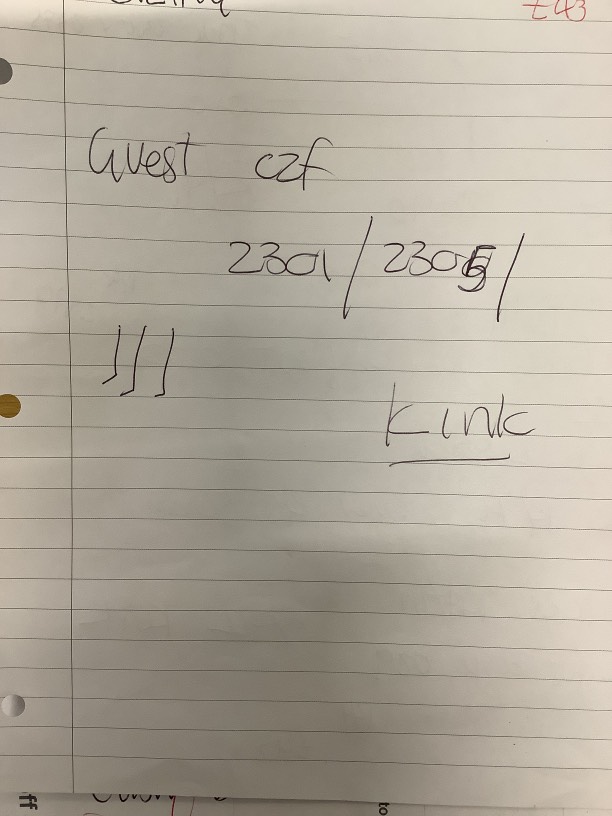 £43
Guest czf
2301/2305/
JJJ
Kink
ff
to